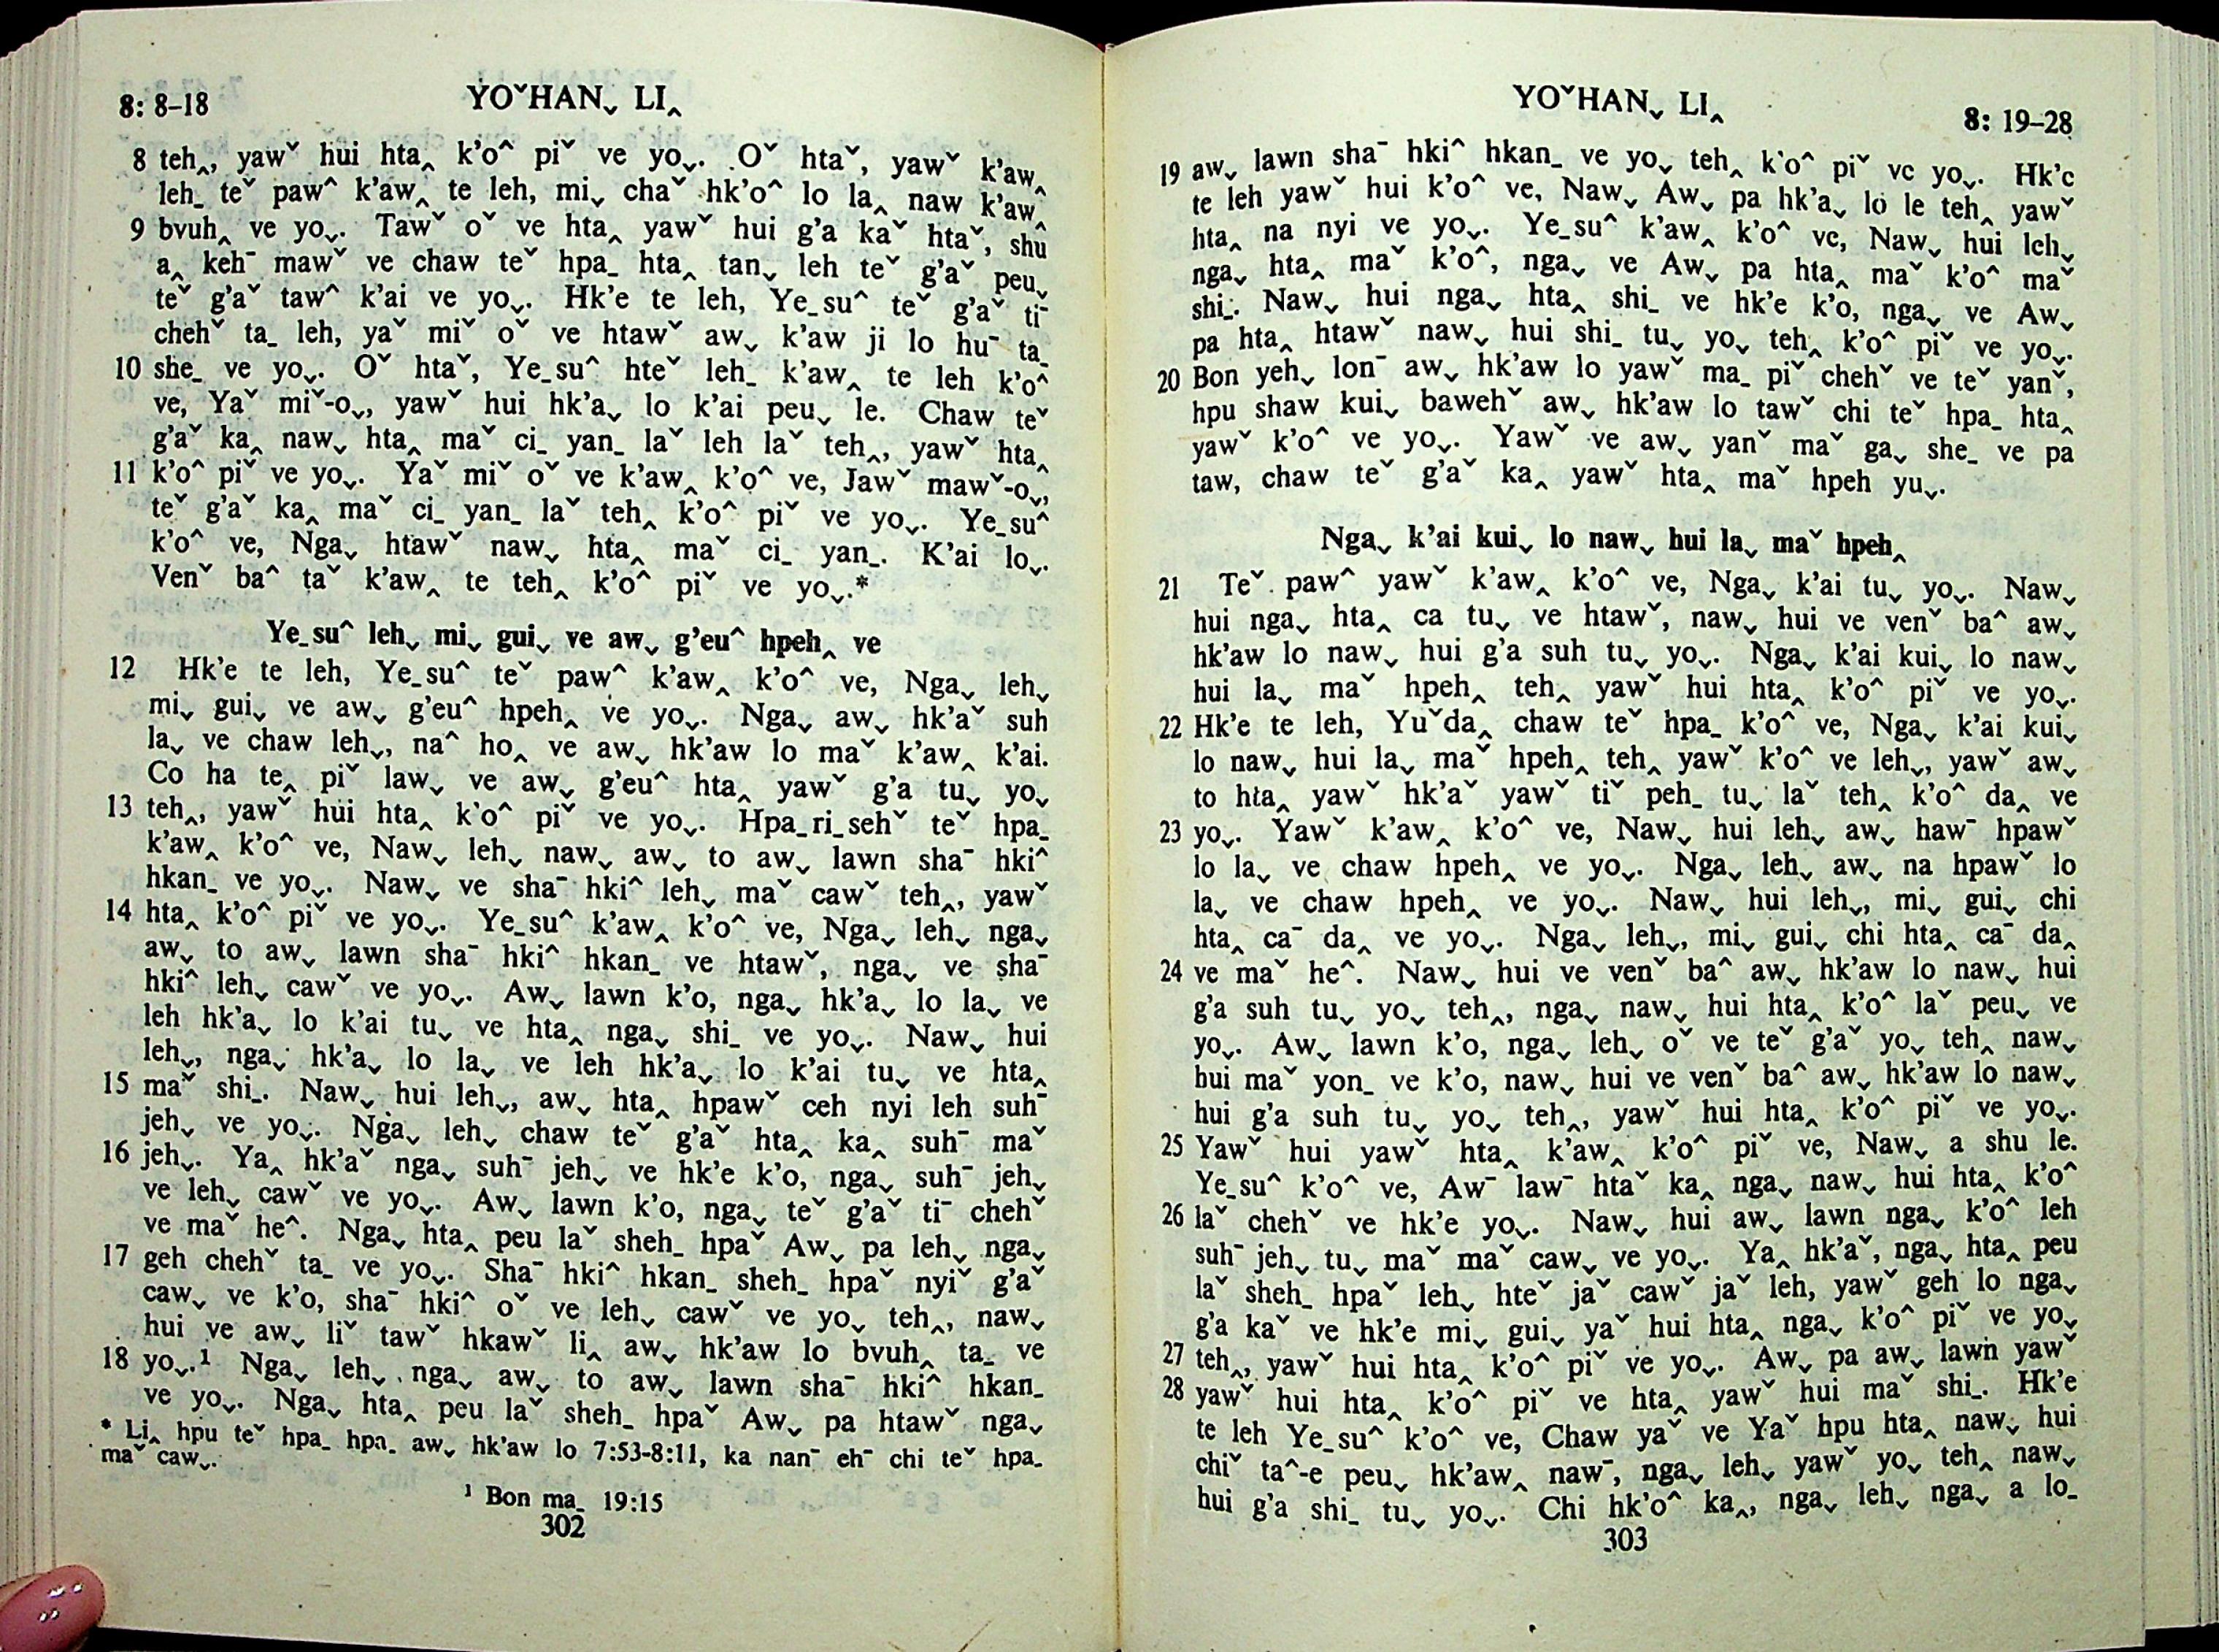 8: 8–18
YOˇHANˬ LI‸
8 teh‸, yawˇ hui hta‸ k’oˆ piˇ ve yoˬ. Oˇ htaˇ, yawˇ k’aw‸
lehˍ teˇ pawˆ k’aw‸ te leh, miˬ chaˇ hk’oˆ lo la‸ naw k’aw‸
9 bvuh‸ ve yoˬ. Tawˇ oˇ ve hta‸ yawˇ hui g’a kaˇ htaˇ, shu
a‸ kehˉ mawˇ ve chaw teˇ hpaˍ hta‸ tanˬ leh teˇ g’aˇ peuˬ
teˇ g’aˇ tawˆ k’ai ve yoˬ. Hk’e te leh, Yeˍsuˆ teˇ g’aˇ tiˉ
chehˇ taˍ leh, yaˇ miˇ oˇ ve htawˇ awˬ k’aw ji lo huˉ taˍ
10 sheˍ ve yoˬ. Oˇ htaˇ, Yeˍsuˆ hteˇ lehˍ k’aw‸ te leh k’oˆ
ve, Yaˇ miˇ-oˬ, yawˇ hui hk’aˬ lo k’ai peuˬ le. Chaw teˇ
g’aˇ ka‸ nawˬ hta‸ maˇ ciˍ yanˍ laˇ leh laˇ teh‸, yawˇ hta‸
11 k’oˆ piˇ ve yoˬ. Yaˇ miˇ oˇ ve k’aw‸ k’oˆ ve, Jawˇ mawˇ-oˬ,
teˇ g’aˇ ka‸ maˇ ciˍ yanˍ laˇ teh‸ k’oˆ piˇ ve yoˬ. Yeˍsuˆ
k’oˆ ve, Ngaˬ htawˇ nawˬ hta‸ maˇ ciˍ yanˍ. K’ai loˬ.
Venˇ baˆ taˇ k’aw‸ te teh‸ k’oˆ piˇ ve yoˬ.*
Yeˍsuˆ lehˬ miˬ guiˬ ve awˬ g’euˆ hpeh‸ ve
12 Hk’e te leh, Yeˍsuˆ teˇ pawˆ k’aw‸ k’oˆ ve, Ngaˬ lehˬ
miˬ guiˬ ve awˬ g’euˆ hpeh‸ ve yoˬ. Ngaˬ awˬ hk’aˇ suh
laˬ ve chaw lehˬ, naˆ ho‸ ve awˬ hk’aw lo maˇ k’aw‸ k’ai.
Co ha te‸ piˇ lawˬ ve awˬ g’euˆ hta‸ yawˇ g’a tuˬ yoˬ
13 teh‸, yawˇ hui hta‸ k’oˆ piˇ ve yoˬ. Hpaˍriˍsehˇ teˇ hpaˍ
k’aw‸ k’oˆ ve, Nawˬ lehˬ nawˬ awˬ to awˬ lawn shaˉ hkiˆ
hkanˍ ve yoˬ. Nawˬ ve shaˉ hkiˆ lehˬ maˇ cawˇ teh‸, yawˇ
14 hta‸ k’oˆ piˇ ve yoˬ. Yeˍsuˆ k’aw‸ k’oˆ ve, Ngaˬ lehˬ ngaˬ
awˬ to awˬ lawn shaˉ hkiˆ hkanˍ ve htawˇ, ngaˬ ve shaˉ
hkiˆ lehˬ cawˇ ve yoˬ. Awˬ lawn k’o, ngaˬ hk’aˬ lo la ve
leh hk’aˬ lo k’ai tuˬ ve hta‸ ngaˬ shiˍ ve yoˬ. Nawˬ hui
lehˬ, ngaˬ hk’aˬ lo laˬ ve leh hk’aˬ lo k’ai tuˬ ve hta‸
15 maˇ shiˍ. Nawˬ hui lehˬ, awˬ hta‸ hpawˇ ceh nyi leh suhˉ
jehˬ ve yoˬ. Ngaˬ lehˬ chaw teˇ g’aˇ hta‸ ka‸ suhˉ maˇ
16 jehˬ. Ya‸ hk’aˇ ngaˬ suhˉ jehˬ ve hk’e k’o, ngaˬ suhˉ jehˬ
ve lehˬ cawˇ ve yoˬ. Awˬ lawn k’o, ngaˬ teˇ g’aˇ tiˉ chehˇ
ve maˇ heˆ. Ngaˬ hta‸ peu laˇ shehˍ hpaˇ Awˬ pa lehˬ ngaˬ
17 geh chehˇ taˍ ve yoˬ. Shaˉ hkiˆ hkanˍ shehˍ hpaˇ nyiˇ g’aˇ
cawˬ ve k’o, shaˉ hkiˆ oˇ ve lehˬ cawˇ ve yoˬ teh‸, nawˬ
hui ve awˬ liˇ tawˇ hkawˇ li‸ awˬ hk’aw lo bvuh‸ taˍ ve
18 yoˬ.¹ Ngaˬ lehˬ ngaˬ awˬ to awˬ lawn shaˉ hkiˆ hkanˍ
ve yoˬ. Ngaˬ hta‸ peu laˇ shehˍ hpaˇ Awˬ pa htawˇ ngaˬ
* Li‸ hpu teˇ hpaˍ hpaˍ awˬ hk’aw lo 7:53-8:11, ka nanˉ ehˉ chi teˇ hpaˍ
maˇ cawˬ.
¹ Bon maˍ 19:15
302
YOˇHANˬ LI‸
8: 19–28
19 awˬ lawn shaˉ hkiˆ hkanˍ ve yoˬ teh‸ k’oˆ piˇ ve yoˬ. Hk’e
te leh yawˇ hui k’oˆ ve, Nawˬ Awˬ pa hk’aˬ lo le teh‸ yawˇ
hta‸ na nyi ve yoˬ. Yeˍsuˆ k’aw‸ k’oˆ ve, Nawˬ hui lehˬ
ngaˬ hta‸ maˇ k’oˆ, ngaˬ ve Awˬ pa hta‸ maˇ k’oˆ maˇ
shiˍ. Nawˬ hui ngaˬ hta‸ shiˍ ve hk’e k’o, ngaˬ ve Awˬ
pa hta‸ htawˇ nawˬ hui shiˍ tuˬ yoˬ teh‸ k’oˆ piˇ ve yoˬ.
20 Bon yehˬ lonˉ awˬ hk’aw lo yawˇ maˍ piˇ chehˇ ve teˇ yanˇ,
hpu shaw kuiˬ bawehˇ awˬ hk’aw lo tawˇ chi teˇ hpaˍ hta‸
yawˇ k’oˆ ve yoˬ. Yawˇ ve awˬ yanˇ maˇ gaˬ sheˍ ve pa
taw, chaw teˇ g’aˇ ka‸ yawˇ hta‸ maˇ hpeh yuˬ.
Ngaˬ k’ai kuiˬ lo nawˬ hui laˬ maˇ hpeh‸
21 Teˇ pawˆ yawˇ k’aw‸ k’oˆ ve, Ngaˬ k’ai tuˬ yoˬ. Nawˬ
hui ngaˬ hta‸ ca tuˬ ve htawˇ, nawˬ hui ve venˇ baˆ awˬ
hk’aw lo nawˬ hui g’a suh tuˬ yoˬ. Ngaˬ k’ai kuiˬ lo nawˬ
hui laˬ maˇ hpeh‸ teh‸ yawˇ hui hta‸ k’oˆ piˇ ve yoˬ.
22 Hk’e te leh, Yuˇda‸ chaw teˇ hpaˍ k’oˆ ve, Ngaˬ k’ai kuiˬ
lo nawˬ hui laˬ maˇ hpeh‸ teh‸ yawˇ k’oˆ ve lehˬ, yawˇ awˬ
to hta‸ yawˇ hk’aˇ yawˇ tiˇ pehˍ tuˬ laˇ teh‸ k’oˆ da‸ ve
23 yoˬ. Yawˇ k’aw‸ k’oˆ ve, Nawˬ hui lehˬ awˬ hawˉ hpawˇ
lo laˬ ve chaw hpeh‸ ve yoˬ. Ngaˬ lehˬ awˬ na hpawˇ lo
laˬ ve chaw hpeh‸ ve yoˬ. Nawˬ hui lehˬ, miˬ guiˬ chi
hta‸ caˉ da‸ ve yoˬ. Ngaˬ lehˬ, miˬ guiˬ chi hta‸ caˉ da‸
24 ve maˇ heˆ. Nawˬ hui ve venˇ baˆ awˬ hk’aw lo nawˬ hui
g’a suh tuˬ yoˬ teh‸, ngaˬ nawˬ hui hta‸ k’oˆ laˇ peuˬ ve
yoˬ. Awˬ lawn k’o, ngaˬ lehˬ oˇ ve teˇ g’aˇ yoˬ teh‸ nawˬ
hui maˇ yonˍ ve k’o, nawˬ hui ve venˇ baˆ awˬ hk’aw lo nawˬ
hui g’a suh tuˬ yoˬ teh‸, yawˇ hui hta‸ k’oˆ piˇ ve yoˬ.
25 Yawˇ hui yawˇ hta‸ k’aw‸ k’oˆ piˇ ve, Nawˬ a shu le.
Yeˍsuˆ k’oˆ ve, Awˉ lawˉ htaˇ ka‸ ngaˬ nawˬ hui hta‸ k’oˆ
26 laˇ chehˇ ve hk’e yoˬ. Nawˬ hui awˬ lawn ngaˬ k’oˆ leh
suhˉ jehˬ tuˬ maˇ maˇ cawˬ ve yoˬ. Ya‸ hk’aˇ, ngaˬ hta‸ peu
laˇ shehˍ hpaˇ lehˬ hteˇ jaˇ cawˇ jaˇ leh, yawˇ geh lo ngaˬ
g’a kaˇ ve hk’e miˬ guiˬ yaˇ hui hta‸ ngaˬ k’oˆ piˇ ve yoˬ
27 teh‸, yawˇ hui hta‸ k’oˆ piˇ ve yoˬ. Awˬ pa awˬ lawn yawˇ
28 yawˇ hui hta‸ k’oˆ piˇ ve hta‸ yawˇ hui maˇ shiˍ. Hk’e
te leh Yeˍsuˆ k’oˆ ve, Chaw yaˇ ve Yaˇ hpu hta‸ nawˬ hui
chiˇ taˆ-e peuˬ hk’aw‸ nawˉ, ngaˬ lehˬ yawˇ yoˬ teh‸ nawˬ
hui g’a shiˍ tuˬ yoˬ. Chi hk’oˆ ka‸, ngaˬ lehˬ ngaˬ a loˍ
303